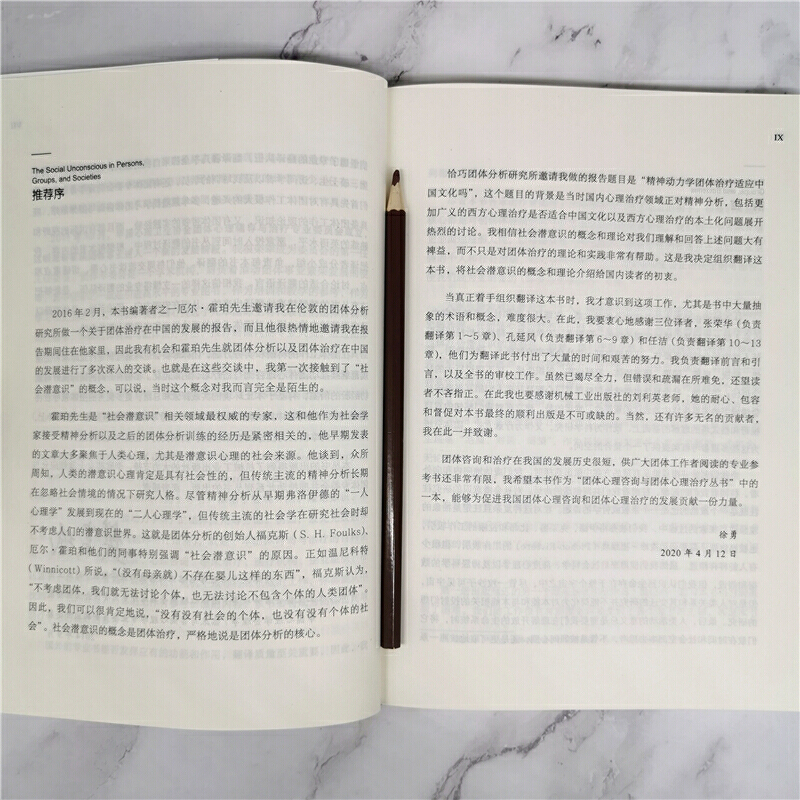 The Social Unconscious in Persons,
Groups, and Societies
推荐序
2016年2月，本书编著者之一厄尔·霍珀先生邀请我在伦敦的团体分析
研究所做一个关于团体治疗在中国的发展的报告，而且他很热情地邀请我在报
告期间住在他家里，因此我有机会和霍珀先生就团体分析以及团体治疗在中国
的发展进行了多次深入的交谈。也就是在这些交谈中，我第一次接触到了“社
会潜意识”的概念，可以说，当时这个概念对我而言完全是陌生的。
霍珀先生是“社会潜意识”相关领域最权威的专家，这和他作为社会学
家接受精神分析以及之后的团体分析训练的经历是紧密相关的，他早期发表
的文章大多聚焦于人类心理，尤其是潜意识心理的社会来源。他谈到，众所
周知，人类的潜意识心理肯定是具有社会性的，但传统主流的精神分析长期
在忽略社会情境的情况下研究人格。尽管精神分析从早期弗洛伊德的“一人
心理学”发展到现在的“二人心理学”，但传统主流的社会学在研究社会时却
不考虑人们的潜意识世界。这就是团体分析的创始人福克斯（S. H. Foulks）、
厄尔·霍珀和他们的同事特别强调“社会潜意识”的原因。正如温尼科特
（Winnicott）所说，“（没有母亲就）不存在婴儿这样的东西”，福克斯认为，
“不考虑团体，我们就无法讨论个体，也无法讨论不包含个体的人类团体”。
因此，我们可以很肯定地说，“没有没有社会的个体，也没有没有个体的社
会”。社会潜意识的概念是团体治疗，严格地说是团体分析的核心。
IX
恰巧团体分析研究所邀请我做的报告题目是“精神动力学团体治疗适应中
国文化吗”，这个题目的背景是当时国内心理治疗领域正对精神分析，包括更
加广义的西方心理治疗是否适合中国文化以及西方心理治疗的本土化问题展开
热烈的讨论。我相信社会潜意识的概念和理论对我们理解和回答上述问题大有
裨益，而不只是对团体治疗的理论和实践非常有帮助。这是我决定组织翻译这
本书，将社会潜意识的概念和理论介绍给国内读者的初衷。
当真正着手组织翻译这本书时，我才意识到这项工作，尤其是书中大量抽
象的术语和概念，难度很大。在此，我要衷心地感谢三位译者，张荣华（负责
翻译第1～5章）、孔延风（负责翻译第6～9章）和任洁（负责翻译第10～13
章），他们为翻译此书付出了大量的时间和艰苦的努力。我负责翻译前言和引
言，以及全书的审校工作。虽然已竭尽全力，但错误和疏漏在所难免，还望读
者不吝指正。在此我也要感谢机械工业出版社的刘利英老师，她的耐心、包容
和督促对本书最终的顺利出版是不可或缺的。当然，还有许多无名的贡献者，
我在此一并致谢。
团体咨询和治疗在我国的发展历史很短，供广大团体工作者阅读的专业参
考书还非常有限，我希望本书作为“团体心理咨询与团体心理治疗丛书”中的
一本，能够为促进我国团体心理咨询和团体心理治疗的发展贡献一份力量。
徐勇
2020年4月12日